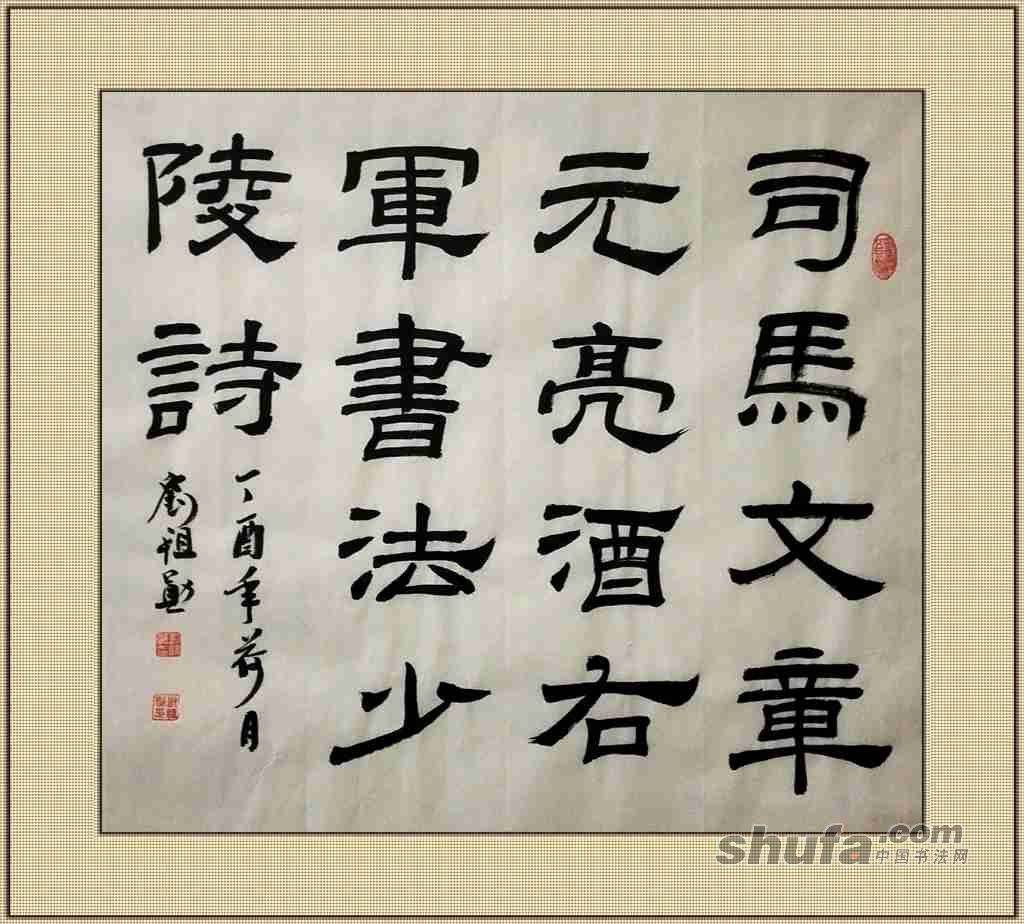 司馬文章
元亮酒右
軍書法少
陵詩
丁酉年荷月
劉祖
shufa.com
中国书法网